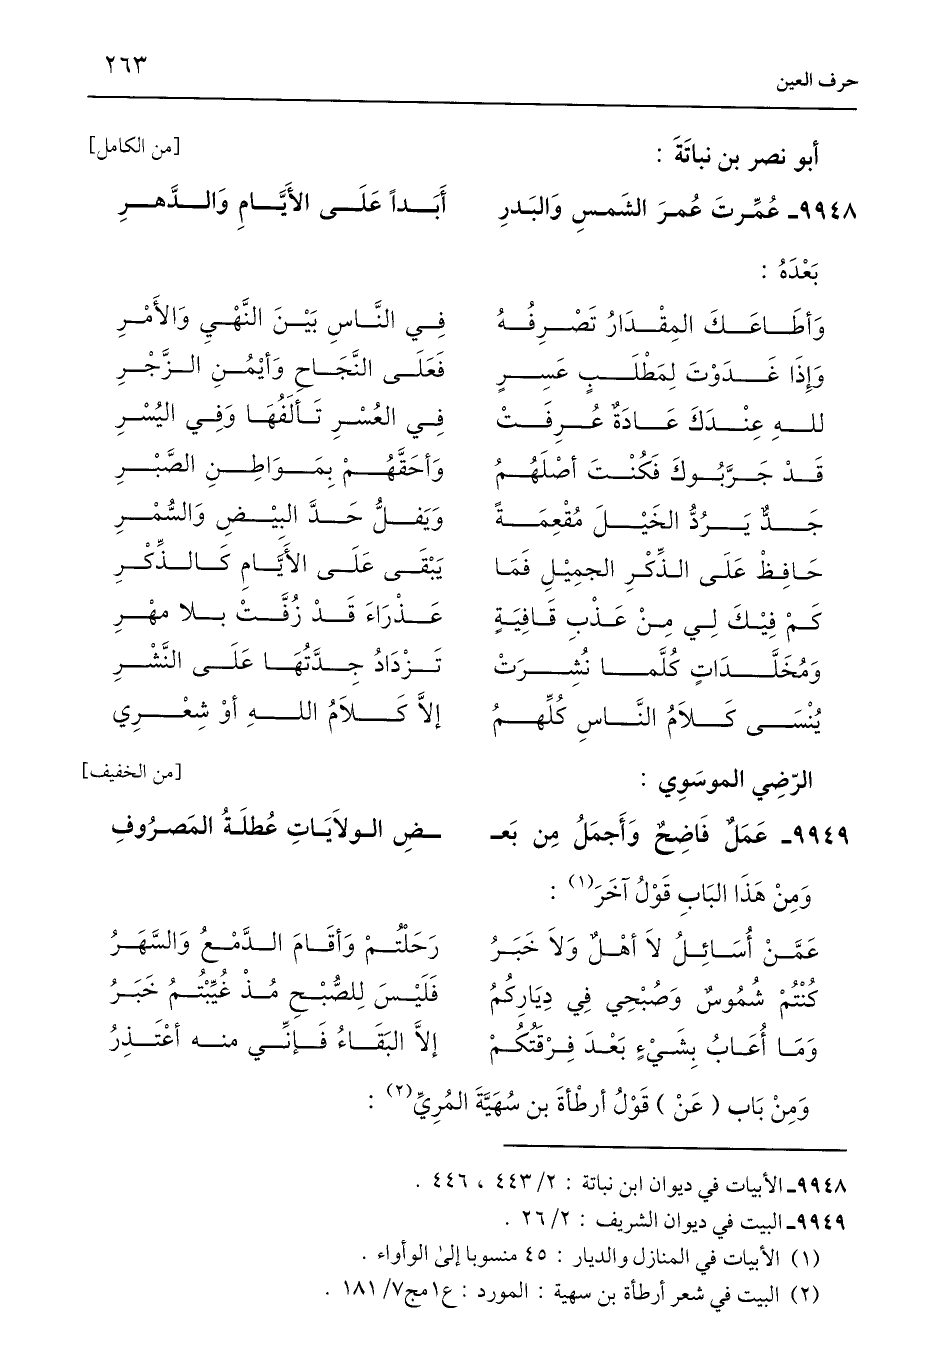 حرف العين ٢٦٣
أبو نصر بن نباتَةَ : [من الكامل]
٩٩٤٨ـ عُمِّرتَ عُمرَ الشَمسِ وَالبَدرِ أَبَداً عَلَى الأيَّامِ وَالدَّهرِ
بَعْدَهُ :
وَأطَاعَكَ المِقْدَارُ تَصْرِفُهُ فِي النَّاسِ بَيْنَ النَّهْيِ وَالأمْرِ
وَإذَا غَدَوْتَ لِمَطْلَبٍ عَسِرٍ فَعَلَى النَّجَاحِ وَأيْمُنِ الزَّجْرِ
للهِ عِنْدَكَ عَادَةٌ عُرِفَتْ فِي العُسْرِ تَألَفُهَا وَفِي اليُسْرِ
قَدْ جَرَّبُوكَ فَكُنْتَ أصْلَهُمُ وَأحَقَّهُمْ بِمَوَاطِنِ الصَّبْرِ
جَدٌّ يَرُدُّ الخَيْلَ مُقْعِمَةً وَيَفلُّ حَدَّ البِيْضِ وَالسُّمْرِ
حَافِظْ عَلَى الذِّكْرِ الجمِيْلِ فَمَا يَبْقَى عَلَى الأيَّامِ كَالذِّكْرِ
كَمْ فِيْكَ لِي مِنْ عَذْبِ قَافِيَةٍ عَذْرَاءَ قَدْ زُفَّتْ بِلا مهْرِ
وَمُخَلَّدَاتٍ كُلَّمَا نُشِرَتْ تَزْدَادُ جِدَّتُهَا عَلَى النَّشْرِ
يُنْسَى كَلاَمُ النَّاسِ كُلِّهِمُ إلاَّ كَلاَمُ اللهِ أوْ شِعْرِي
الرّضِي الموسَوِي : [من الخفيف]
٩٩٤٩ـ عَمَلٌ فَاضِحٌ وَأَجمَلُ مِن بَعـ ـضِ الولاَيَاتِ عُطلَةُ المَصرُوفِ
وَمِنْ هَذَا البَابِ قَوْلُ آخَرَ(١) :
عَمَّنْ أُسَائِلُ لاَ أهْلٌ وَلاَ خَبَرُ رَحَلْتُمْ وَأقَامَ الدَّمْعُ وَالسَّهَرُ
كُنْتُمْ شُمُوسٌ وَصُبْحِي فِي دِيَارِكُمُ فَلَيْسَ لِلصُّبْحِ مُذْ غُيِّبْتُمُ خَبَرُ
وَمَا أُعَابُ بِشَيْءٍ بَعْدَ فِرْقَتُكُمْ إلاَّ البَقَاءُ فَإنِّي منه أعْتَذِرُ
وَمِنْ بَابِ ( عَنْ ) قَوْلُ أرطْأةَ بن سُهَيَّةَ المُرِيِّ(٢) :
٩٩٤٨ـ الأبيات في ديوان ابن نباتة : ٢/ ٤٤٣ ، ٤٤٦ .
٩٩٤٩ـ البيت في ديوان الشريف : ٢/ ٢٦ .
(١) الأبيات في المنازل والديار : ٤٥ منسوبا إلىٰ الوأواء .
(٢) البيت في شعر أرطأة بن سهية : المورد : ع١مج٧/ ١٨١ .